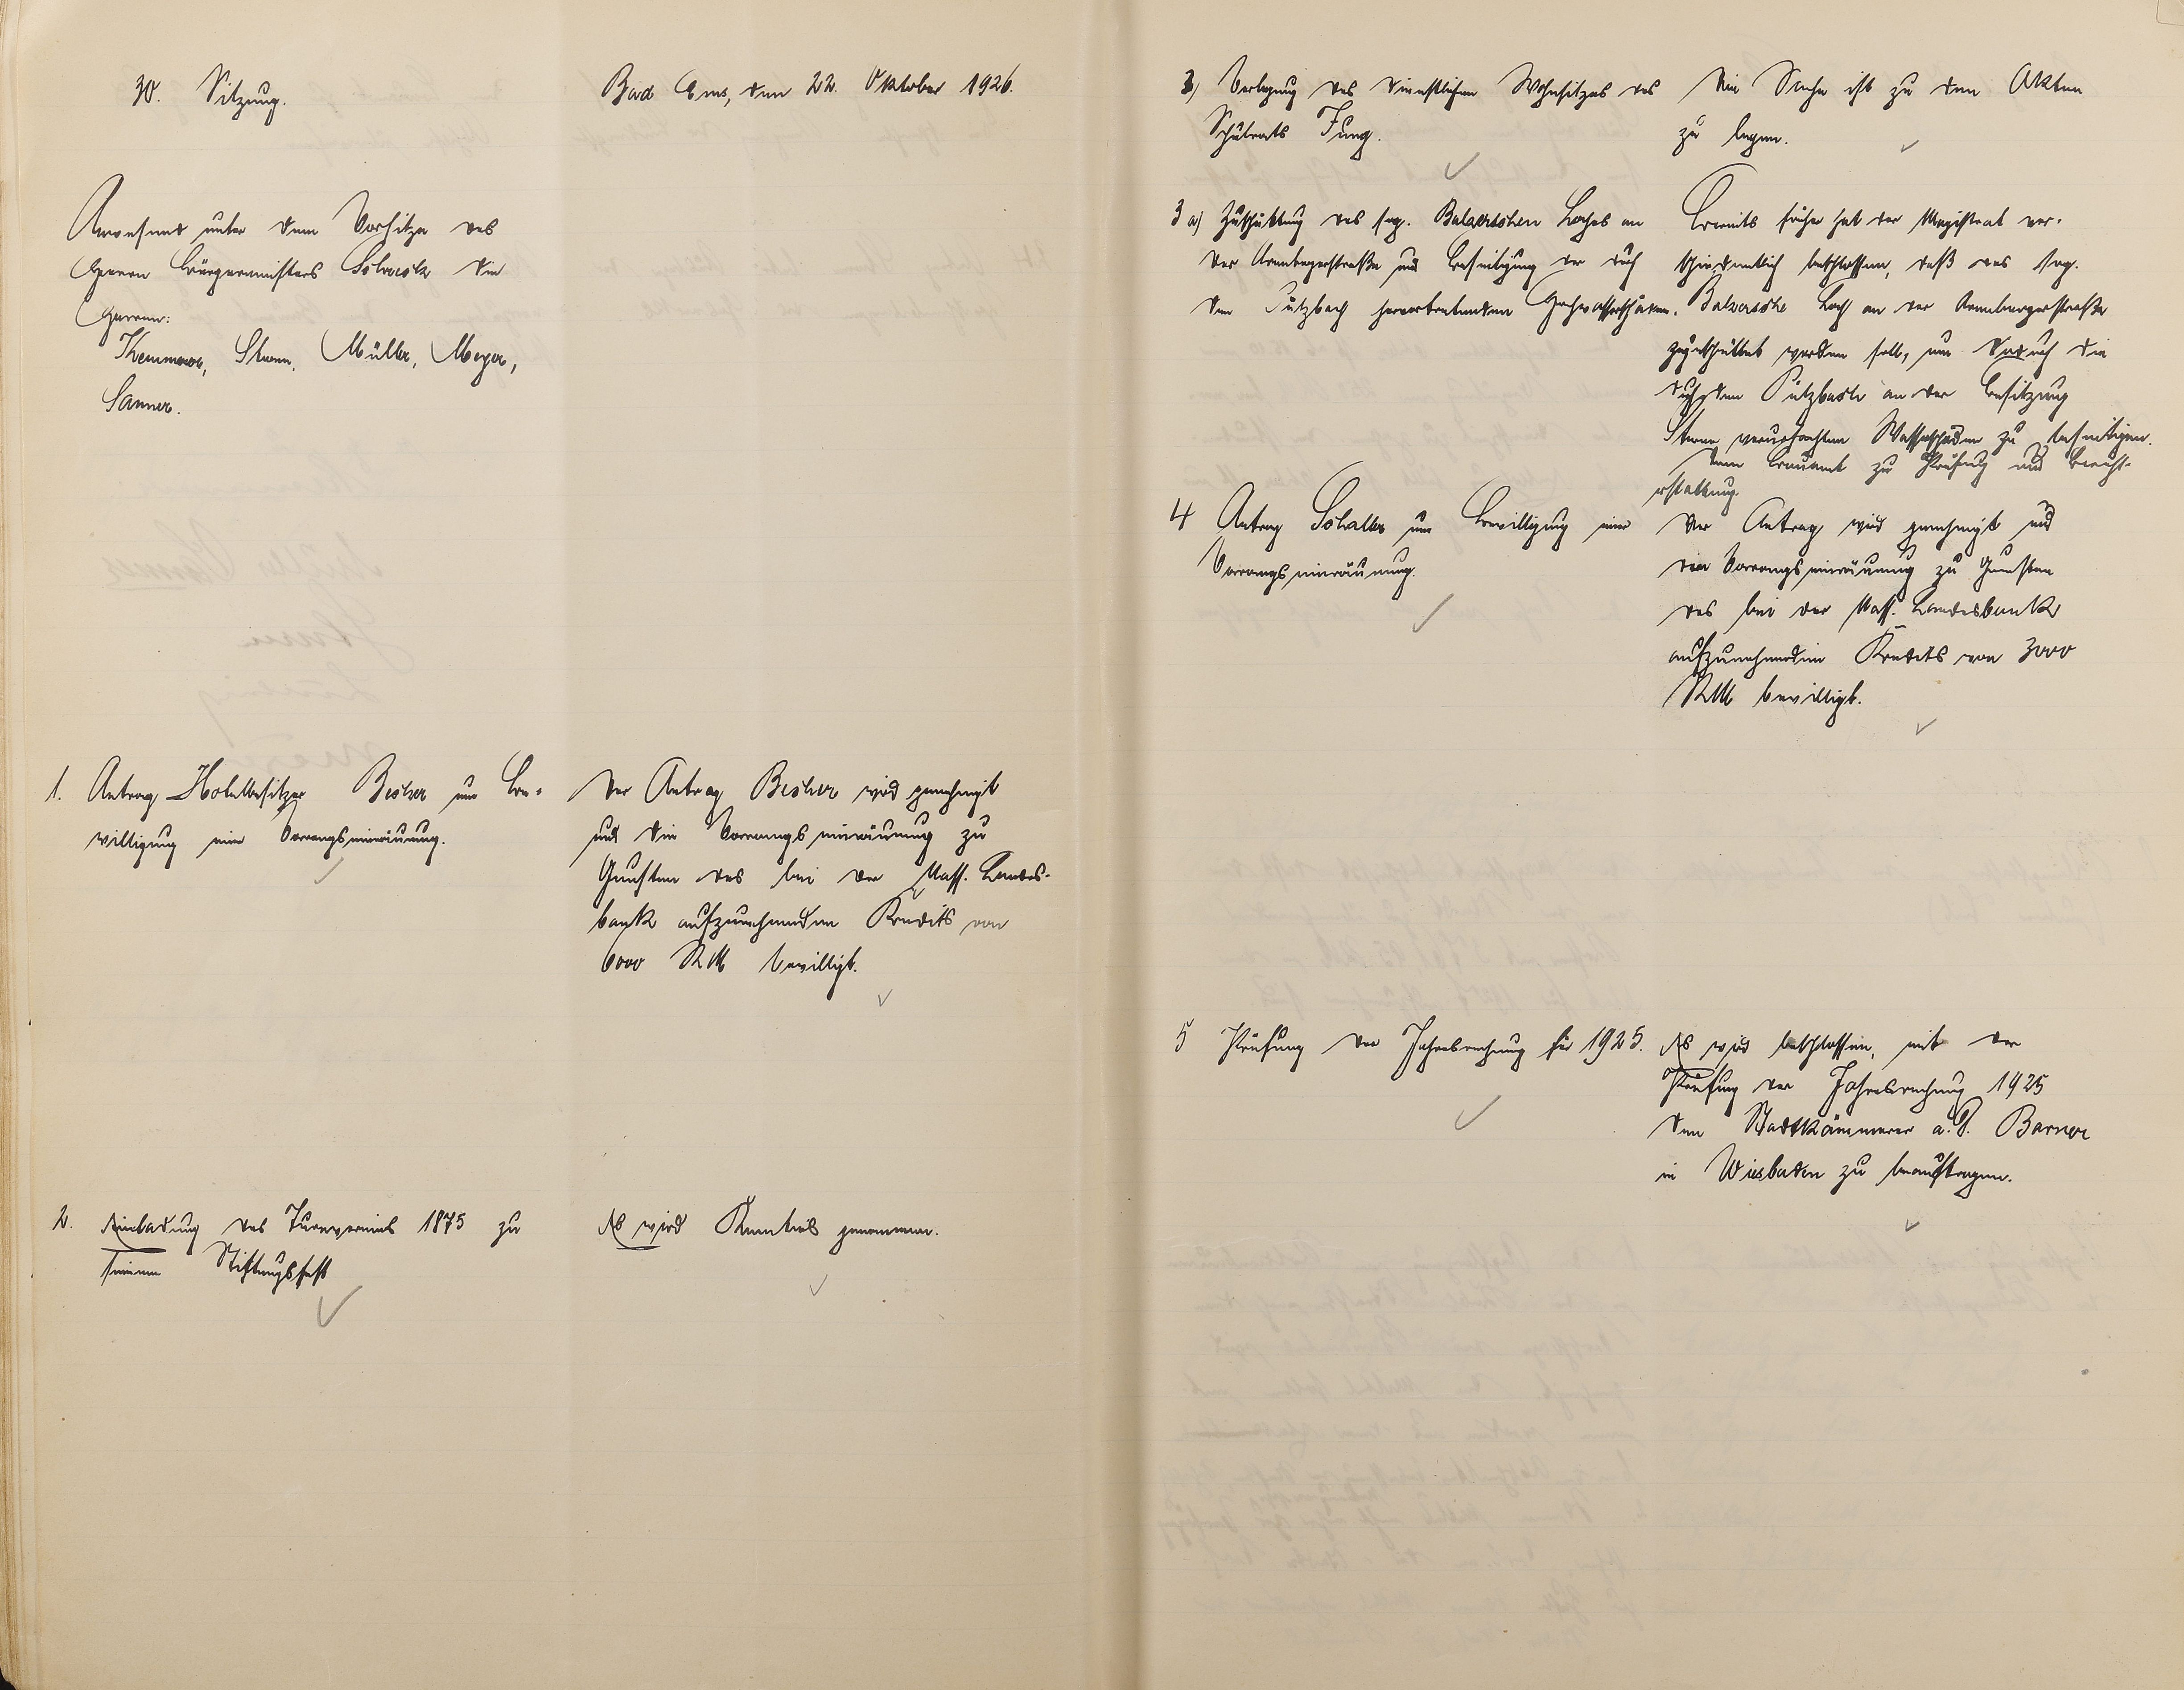 30. Sitzung.
Bad Ems, den 22. Oktober 1926.
Anwesend unter dem Vorsitze des
Herrn Bürgermeisters Schreck die
Herren:
Kemmerer, Stemm, Müller, Meyer,
Sanner.
1. Antrag Hotelbesitzer Becker um Be-
willigung einer Vorrangseinräumung.
Der Antrag Becker wird genehmigt
und die Vorrangseinräumung zu
Gunsten des bei der Nass. Landes-
bank aufzunehmenden Kredits von
6000 RM bewilligt.
2. Einladung des Turnvereins 1875 zu
seinem Stiftungsfest
Es wird Kenntnis genommen.
3) Verlegung des dienstlichen Wohnsitzes des
Schulrats Jung.
Die Sache ist zu den Akten
zu legen.
3a) Zuschüttung des sog. Balzerschen Loches an
der Arenbergerstraße und Beseitigung der durch
den Pützbach hervortretenden Hochwasserschäden.
Bereits früher hat der Magistrat ver-
schiedentlich beschlossen, daß das sog.
Balzersche Loch an der Arenbergerstraße
zugeschüttet werden soll, um dadurch die
durch den Pützbach an der Besitzung
verursachten Wasserschäden zu beseitigen.
Dem Bauamt zu Prüfung und Bericht-
erstattung.
4 Antrag Schaller um Bewilligung einer
Vorrangseinräumung.
Der Antrag wird genehmigt und
die Vorrangseinräumung zu Gunsten
des bei der Nass. Landesbank
aufzunehmenden Kredits von 3000
RM bewilligt.
5 Prüfung der Jahresrechnung für 1925.
Es wird beschlossen, mit der
Prüfung der Jahresrechnung 1925
den Stadtkämmerer a.D. Barner
in Wiesbaden zu beauftragen.